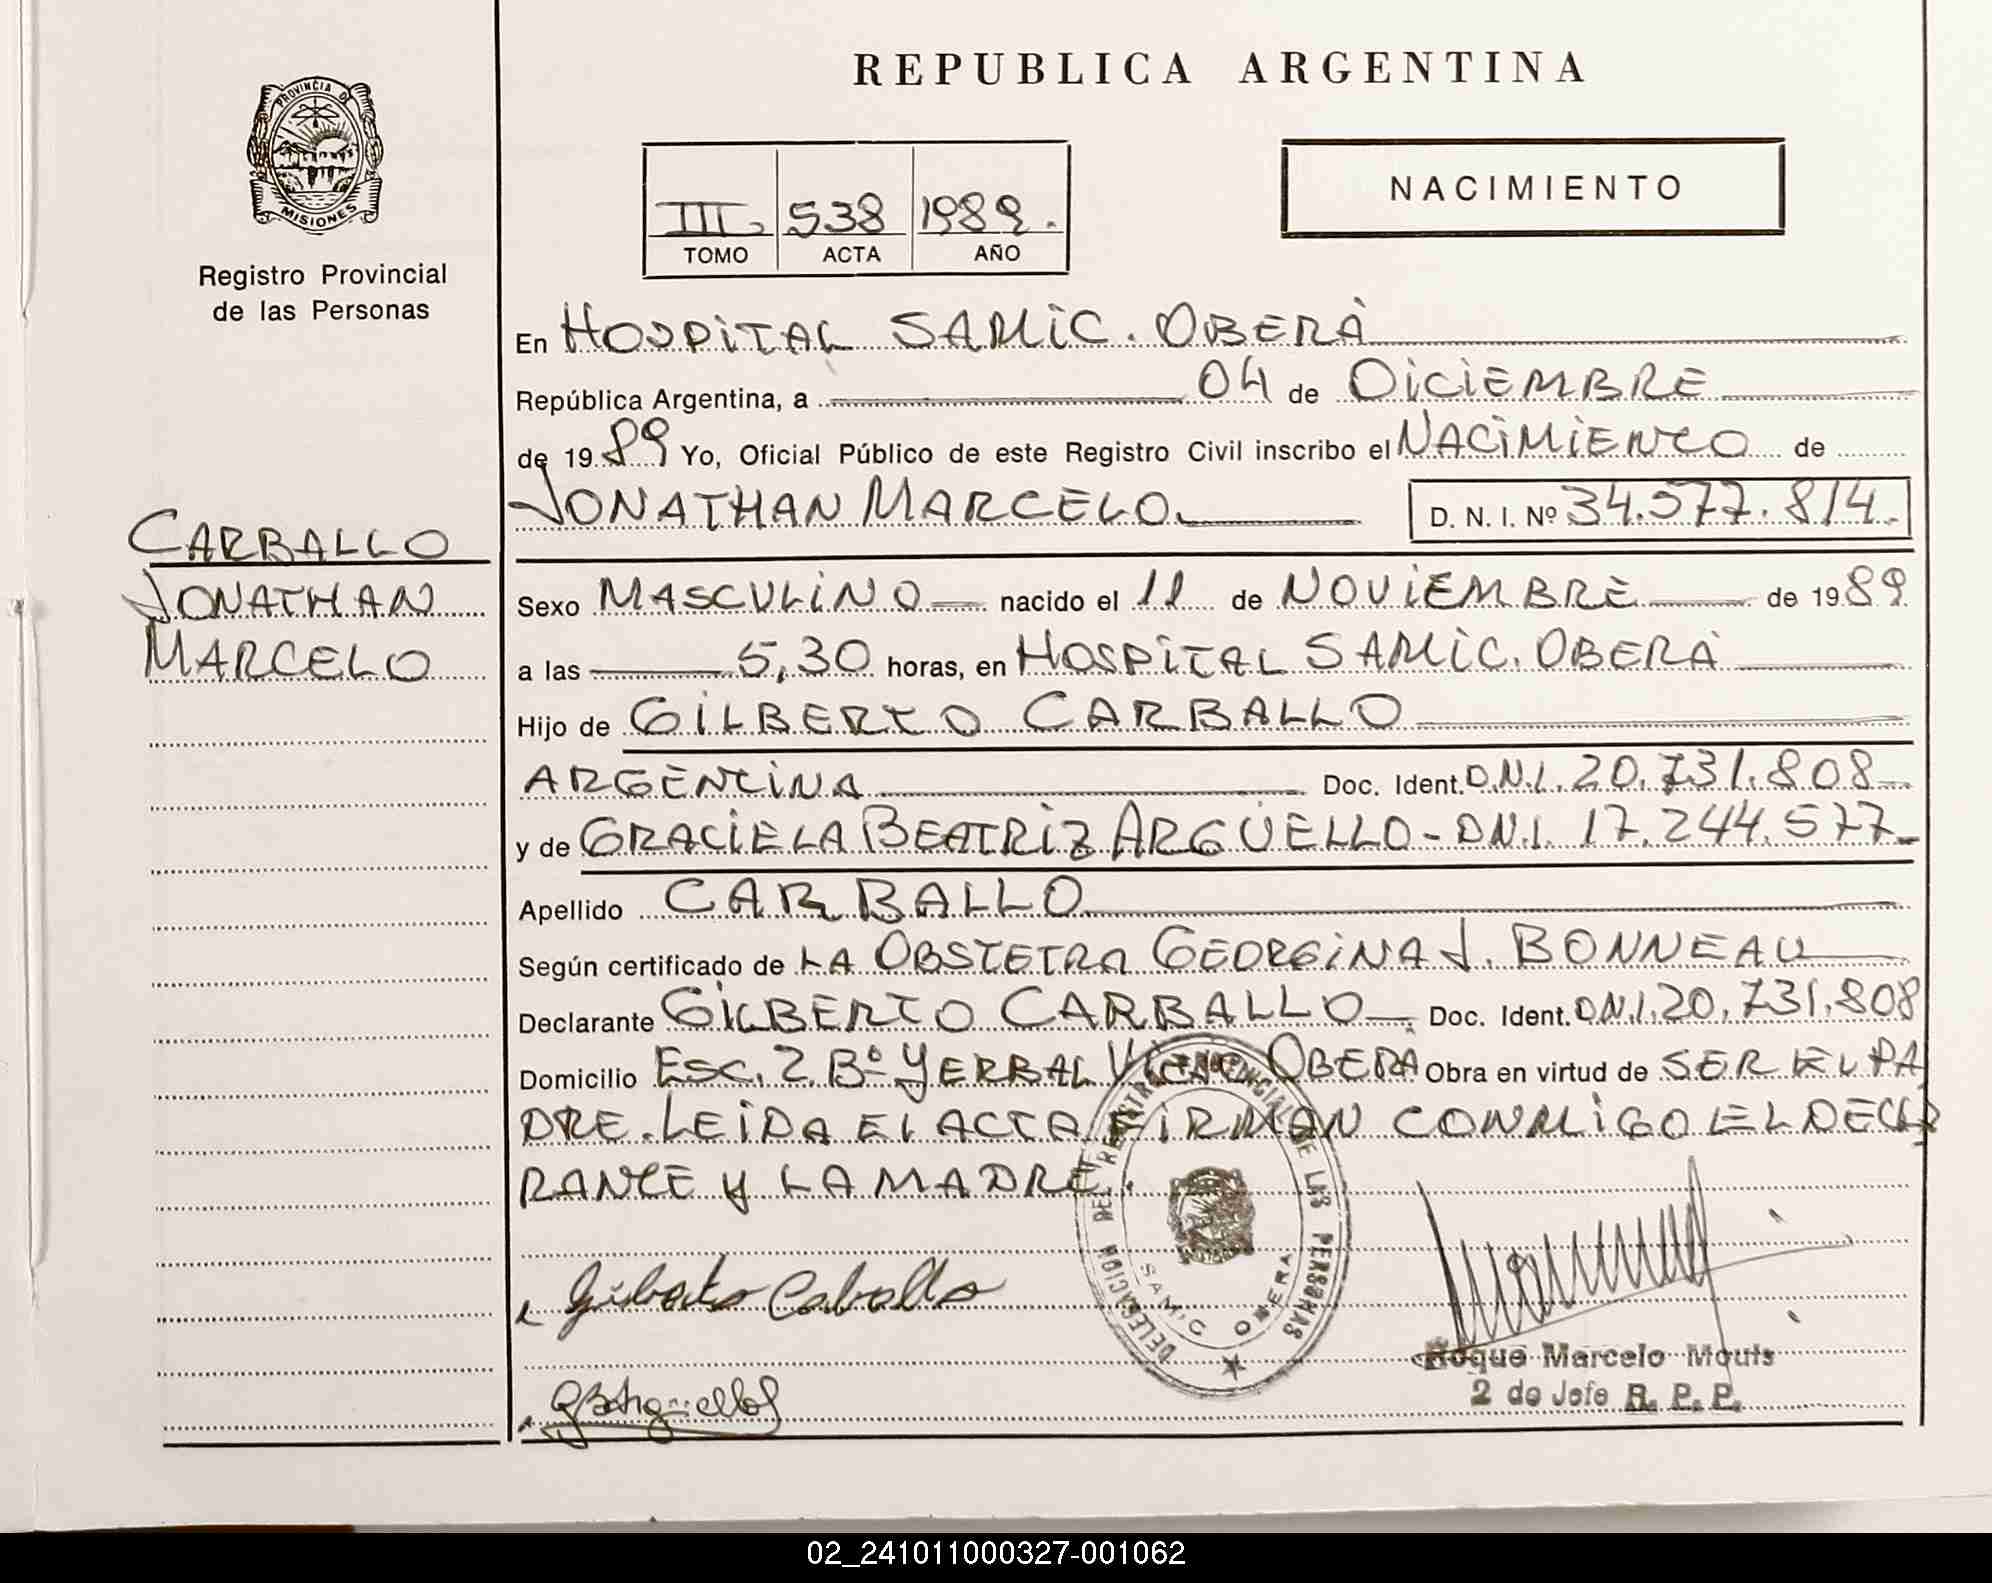 REPUBLICA ARGENTINA
PROVINCIA DE
MISIONES
Registro Provincial
de las Personas
III. 538 1989.
TOMO ACTA AÑO
NACIMIENTO
CARBALLO
JONATHAN
MARCELO
En HOSPITAL SAMIC. OBERÁ
República Argentina, a 04 de DICIEMBRE
de 1989 Yo, Oficial Público de este Registro Civil inscribo el NACIMIENTO de
JONATHAN MARCELO. D. N. I. Nº 34.577.814.
Sexo MASCULINO nacido el 11 de NOVIEMBRE de 1989
a las 5,30 horas, en HOSPITAL SAMIC. OBERÁ
Hijo de GILBERTO CARBALLO
ARGENTINA Doc. Ident. D.N.I. 20.731.808
y de GRACIELA BEATRIZ ARGÜELLO - D.N.I. 17.244.577-
Apellido CARBALLO
Según certificado de LA OBSTETRA GEORGINA J. BONNEAU
Declarante GILBERTO CARBALLO Doc. Ident. D.N.I. 20.731.808
Domicilio ESC. 2. Bº YERBAL VIEJO OBERÁ Obra en virtud de SER EL PA
DRE. LEIDA EL ACTA FIRMAN CONMIGO EL DECLA
RANTE Y LA MADRE.
DELEGACION DEL REGISTRO PROVINCIAL DE LAS PERSONAS
SAMIC OBERA
Gilberto Carballo
GBArguello
Roque Marcelo Mouts
2 do Jefe R. P. P.
02_241011000327-001062